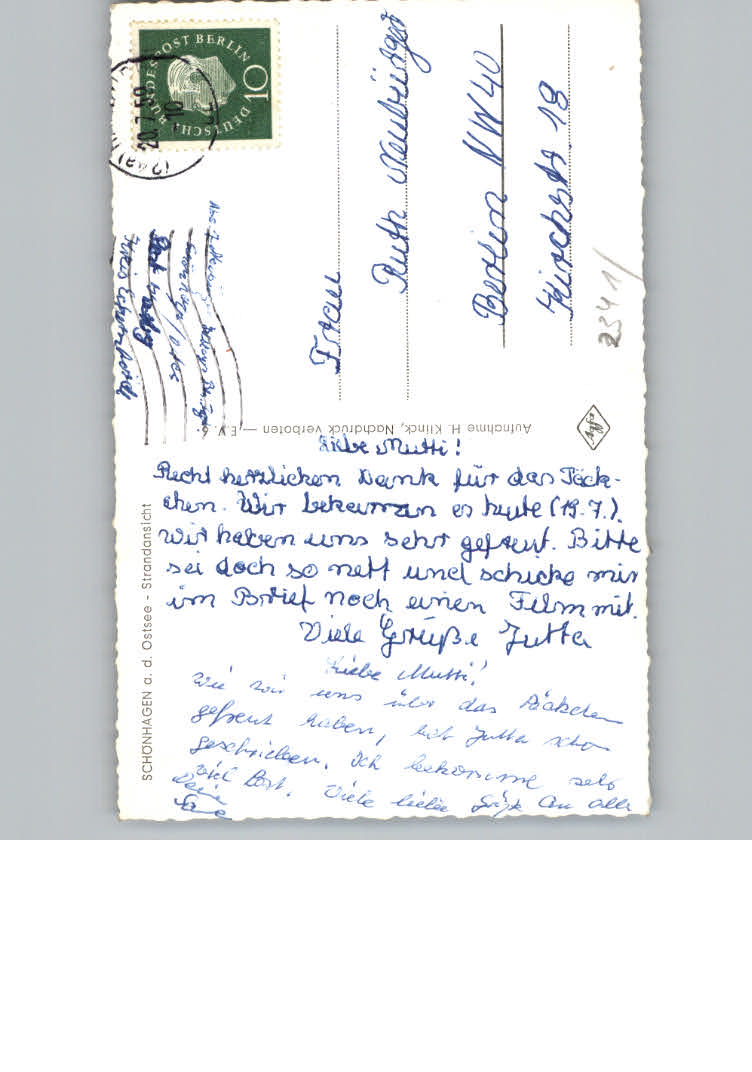 DEUTSCHE BUNDESPOST BERLIN
10
20.7.59
10
Frau
Ruth Neubürger
Berlin NW 40
Kirchstr. 18
2341/
Agfa
Aufnahme H. Klinck, Nachdruck verboten — E.V. 6.
SCHÖNHAGEN a. d. Ostsee - Strandansicht
Liebe Mutti!
Recht herzlichen Dank für das Päck-
chen. Wir bekamen es heute (19.7.).
Wir haben uns sehr gefreut. Bitte
sei doch so nett und schicke mir
im Brief noch einen Film mit.
Viele Grüße Jutta
Liebe Mutti!
Wie wir uns über das Päckchen
gefreut haben, hat Jutta schon
geschrieben. Ich bekomme sehr
viel Post. Viele liebe Grüße an alle
Deine